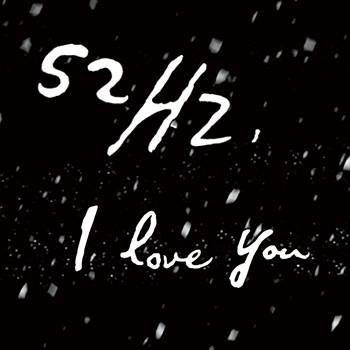 52Hz,
I love you